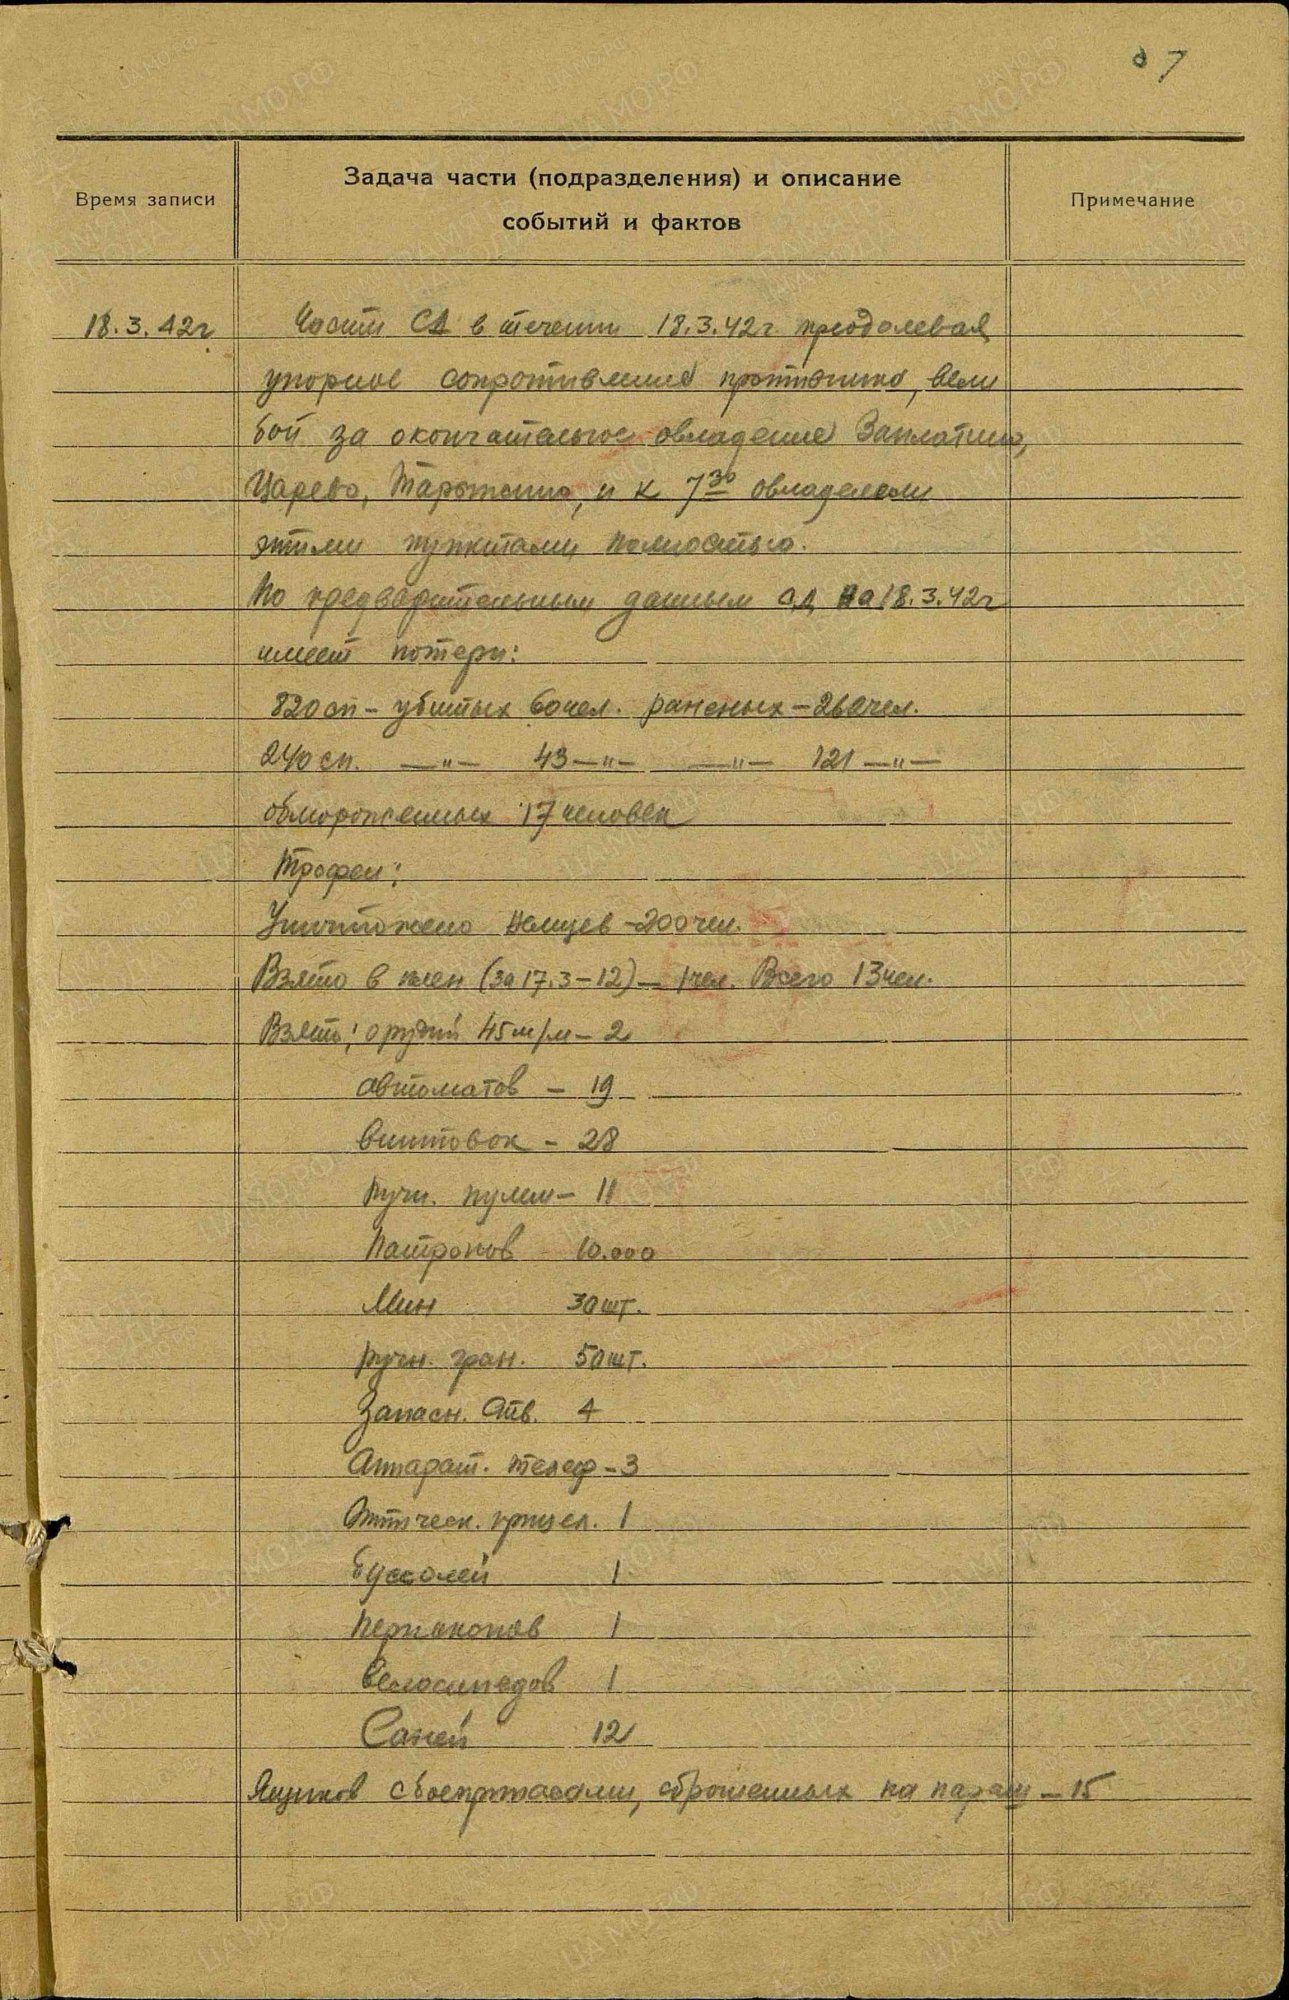 87
Время записи
Задача части (подразделения) и описание
событий и фактов
Примечание
18.3.42г
Части СД в течении 18.3.42г. преодолевая
упорное сопротивление противника, вели
бой за окончательное овладение Заплатино,
Царево, Тарыжино, и к 7 30 овладели
этими пунктами полностью.
По предварительным данным СД на 18.3.42г
имеет потери:
820 сп - убитых 60 чел. раненых - 260 чел.
240 сп. —"— 43 —"— —"— 121 —"—
обмороженных 17 человек
Трофеи:
Уничтожено немцев - 200 чел.
Взято в плен (за 17.3 - 12) - 1 чел. Всего 13 чел.
Взято: орудий 45 м/м - 2
автоматов - 19
винтовок - 28
Ручн. пулем - 11
Патронов - 10.000
Мин 30 шт.
ручн. гран. 50 шт.
Запасн. Ств. 4
Аппарат. телеф - 3
Оптическ. прицел. 1
Буссолей 1
Перископов 1
Велосипедов 1
Саней 12
Ящиков с боеприпасами, сброшенных на параш - 15